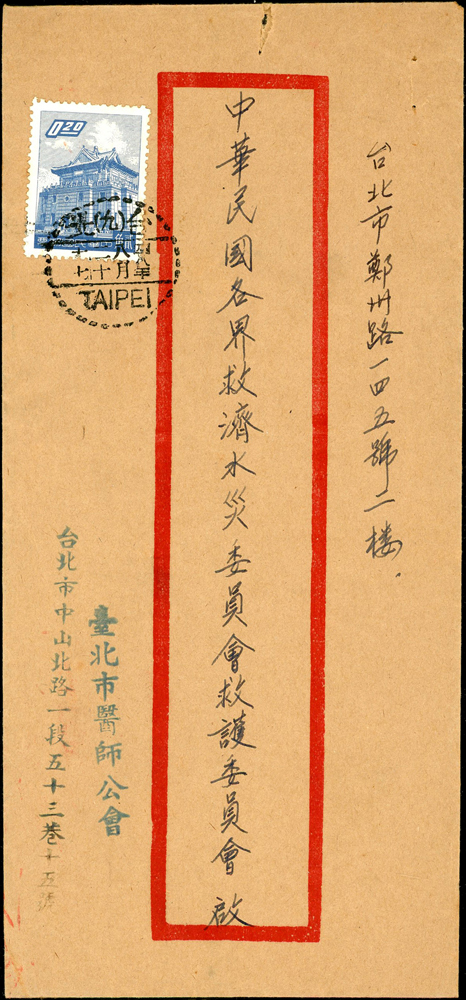 台北市鄭州路一四五號二楼
中華民國各界救濟水災委員會救護委員會 啟
0.20
TAIPEI
臺北市醫師公會
台北市中山北路一段五十三巷十五號